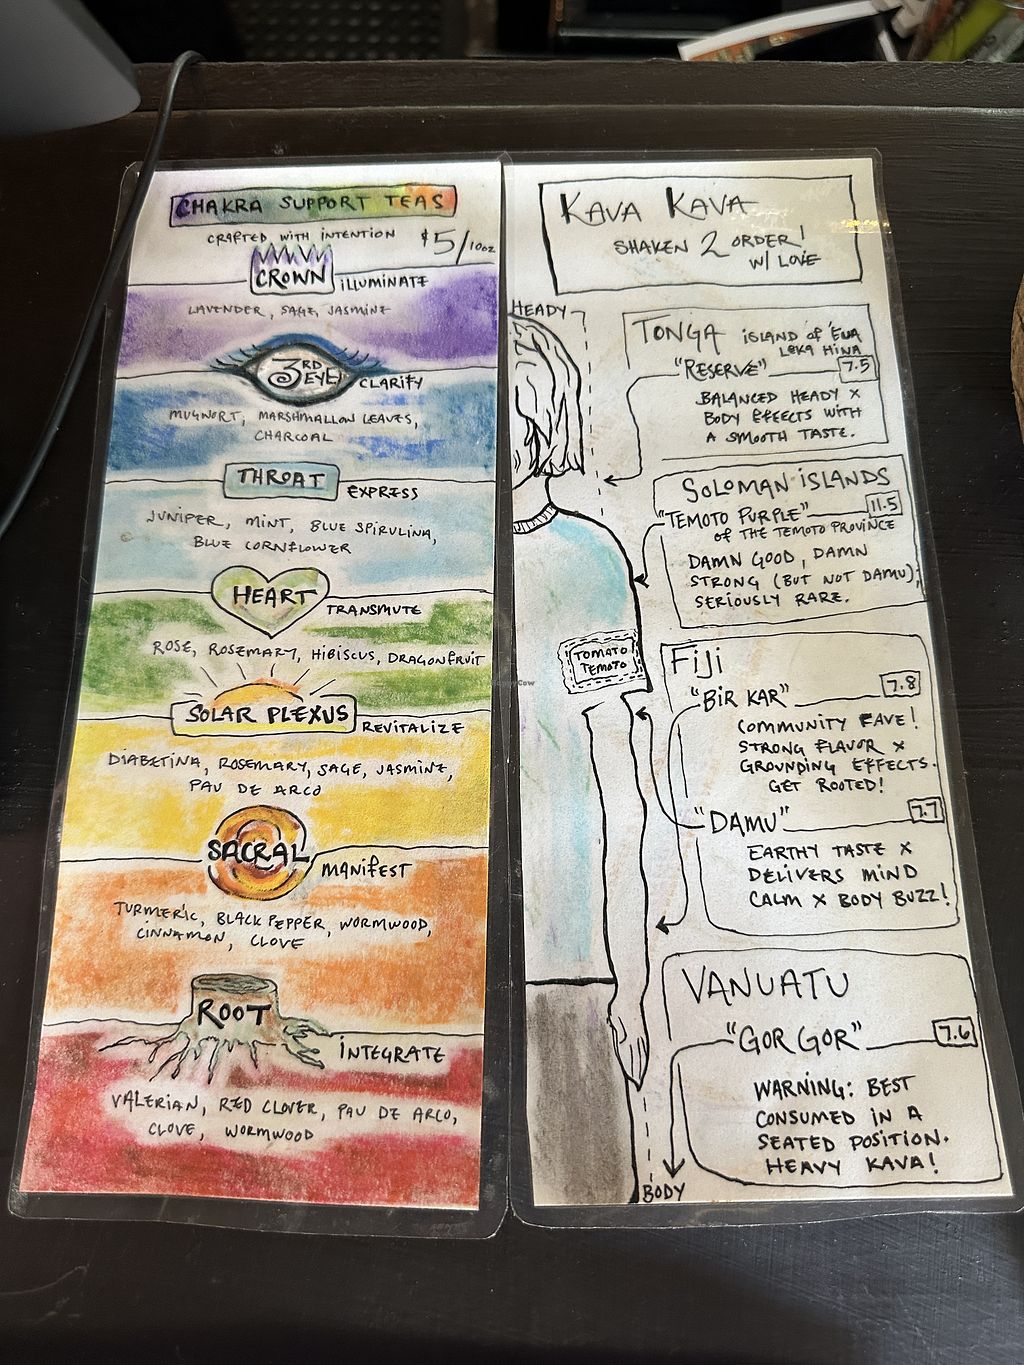 CHAKRA SUPPORT TEAS
CRAFTED WITH INTENTION $5/10oz
CROWN ILLUMINATE
LAVENDER, SAGE, JASMINE
3RD EYE CLARIFY
MUGWORT, MARSHMALLOW LEAVES,
CHARCOAL
THROAT EXPRESS
JUNIPER, MINT, BLUE SPIRULINA,
BLUE CORNFLOWER
HEART TRANSMUTE
ROSE, ROSEMARY, HIBISCUS, DRAGONFRUIT
SOLAR PLEXUS REVITALIZE
DIABETINA, ROSEMARY, SAGE, JASMINE,
PAU DE ARCO
SACRAL MANIFEST
TURMERIC, BLACK PEPPER, WORMWOOD,
CINNAMON, CLOVE
ROOT INTEGRATE
VALERIAN, RED CLOVER, PAU DE ARCO,
CLOVE, WORMWOOD
KAVA KAVA
SHAKEN 2 ORDER!
W/ LOVE
HEADY
TONGA ISLAND OF 'EUA
LEKA HINA
"RESERVE" 7.5
BALANCED HEADY X
BODY EFFECTS WITH
A SMOOTH TASTE.
SOLOMAN ISLANDS
"TEMOTO PURPLE" 11.5
OF THE TEMOTO PROVINCE
DAMN GOOD, DAMN
STRONG (BUT NOT DAMU);
SERIOUSLY RARE.
TOMATO
TEMOTO
FIJI
"BIR KAR" 7.8
COMMUNITY FAVE!
STRONG FLAVOR X
GROUNDING EFFECTS.
GET ROOTED!
"DAMU" 7.7
EARTHY TASTE X
DELIVERS MIND
CALM X BODY BUZZ!
VANUATU
"GOR GOR" 7.6
WARNING: BEST
CONSUMED IN A
SEATED POSITION.
HEAVY KAVA!
BODY